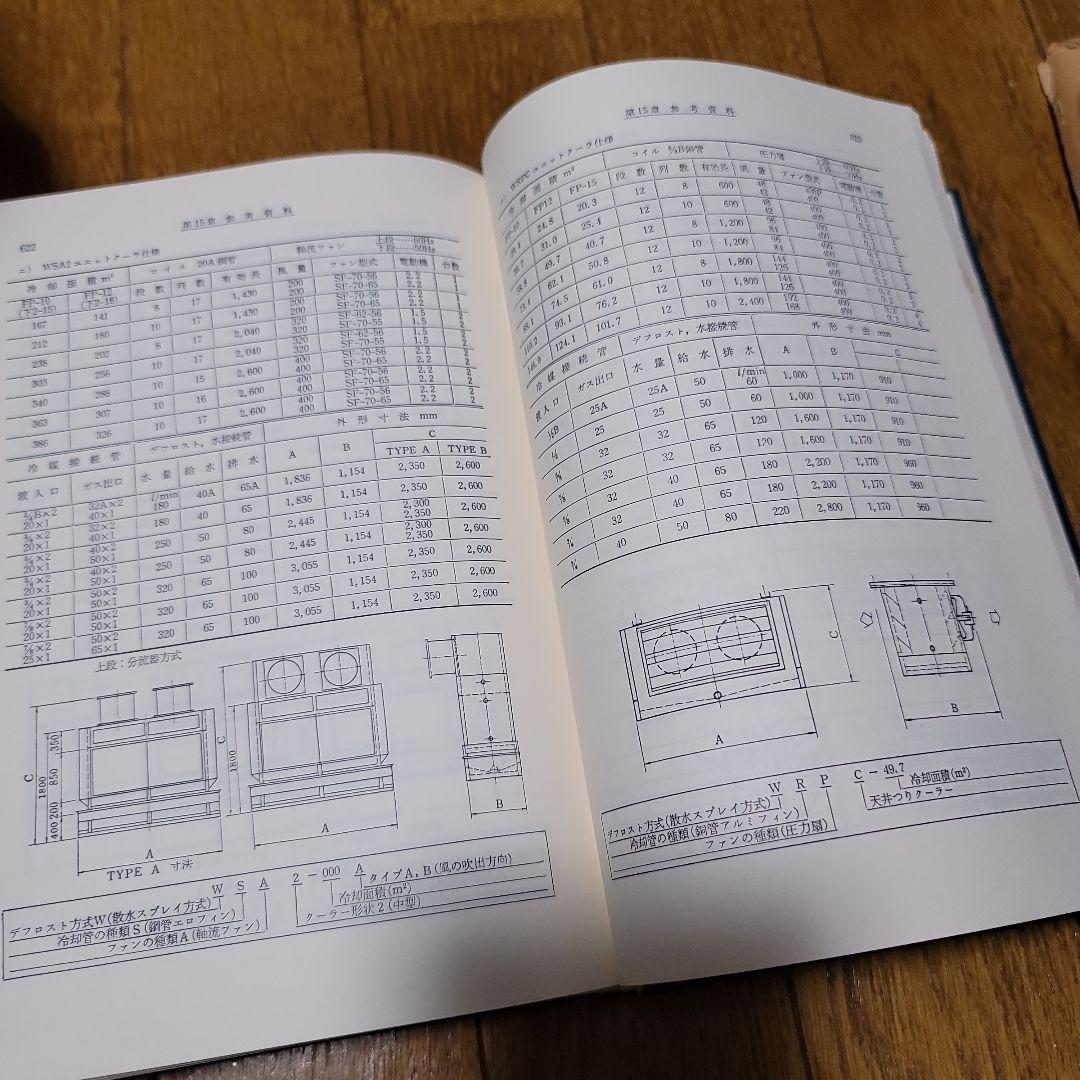 第15章 参 考 資 料
622
ニ) WSA2ユニットクーラ仕様
冷 却 面 積 m² コ イ ル 20A 鋼管 軸流ファン 上段……60Hz
下段……50Hz
FP-10 FP-12 段 数 列 数 有 効 長 風 量 ファン型式 電動機 台数
(T2-15) (T2-18)
167 141 8 17 1,430 200 SF-70-56 2.2 1
200 SF-70-65 2.2
212 180 10 17 1,430 200 SF-70-56 2.2 1
200 SF-70-65 2.2
238 202 8 17 2,040 320 SF-62-56 1.5 2
320 SF-70-55 1.5
303 256 10 17 2,040 320 SF-62-56 1.5 2
320 SF-70-55 1.5
340 288 10 15 2,600 400 SF-70-56 2.2 2
400 SF-70-65 2.2
363 307 10 16 2,600 400 SF-70-56 2.2 2
400 SF-70-65 2.2
386 326 10 17 2,600 400 SF-70-56 2.2 2
400 SF-70-65 2.2
冷 媒 接 続 管 デフロスト, 水接続管 外 形 寸 法 mm
液入口 ガス出口 水 量 給 水 排 水 A B C
TYPE A TYPE B
¾B×2 32A×2 l/min 180 40A 65A 1,836 1,154 2,350 2,600
20×1 40×1
¾×2 32×2 180 40 65 1,836 1,154 2,350 2,600
20×1 40×1
¾×2 40×2 250 50 80 2,445 1,154 2,300 2,600
20×1 50×1 2,350
¾×2 40×2 250 50 80 2,445 1,154 2,300 2,600
20×1 50×1 2,350
¾×2 50×2 320 65 100 3,055 1,154 2,350 2,600
20×1 50×1
⅞×2 50×2 320 65 100 3,055 1,154 2,350 2,600
20×1 50×1
⅞×2 50×2 320 65 100 3,055 1,154 2,350 2,600
25×1 65×1
上段：分流器方式
C
1800
350
850
200
400
A
TYPE A 寸法
C
1800
A
B
W S A 2 － 000 A
タイプA, B(風の吹出方向)
冷却面積(m²)
クーラー形状2(中型)
デフロスト方式W(散水スプレイ方式)
冷却管の種類S(鋼管エロフィン)
ファンの種類A(軸流ファン)
第15章 参 考 資 料
WRPCユニットクーラ仕様
冷 却 面 積 m² コイル ⅝B銅管 圧力扇
FP-10 FP12 FP-15 段 数 列 数 有効長 風 量 ファン型式 電動機 台数
24.8 20.3 12 8 600
31.0 25.4 12 10 600
49.7 40.7 12 8 1,200
62.1 50.8 12 10 1,200
74.5 61.0 12 8 1,800
93.1 76.2 12 10 1,800
124.1 101.7 12 10 2,400
冷 媒 接 続 管 デフロスト, 水接続管 外 形 寸 法 mm
液入口 ガス出口 水 量 給 水 排 水 A B C
½B 25A 25A 50 l/min 60 1,000 1,170 910
25 25 50 60 1,000 1,170 910
32 32 65 120 1,600 1,170 910
32 32 65 120 1,600 1,170 910
32 40 65 180 2,200 1,170 960
32 40 65 180 2,200 1,170 960
40 50 80 220 2,800 1,170 960
C
A
B
W R P C － 49.7
冷却面積(m²)
天井つりクーラー
デフロスト方式(散水スプレイ方式)
冷却管の種類(銅管アルミフィン)
ファンの種類(圧力扇)